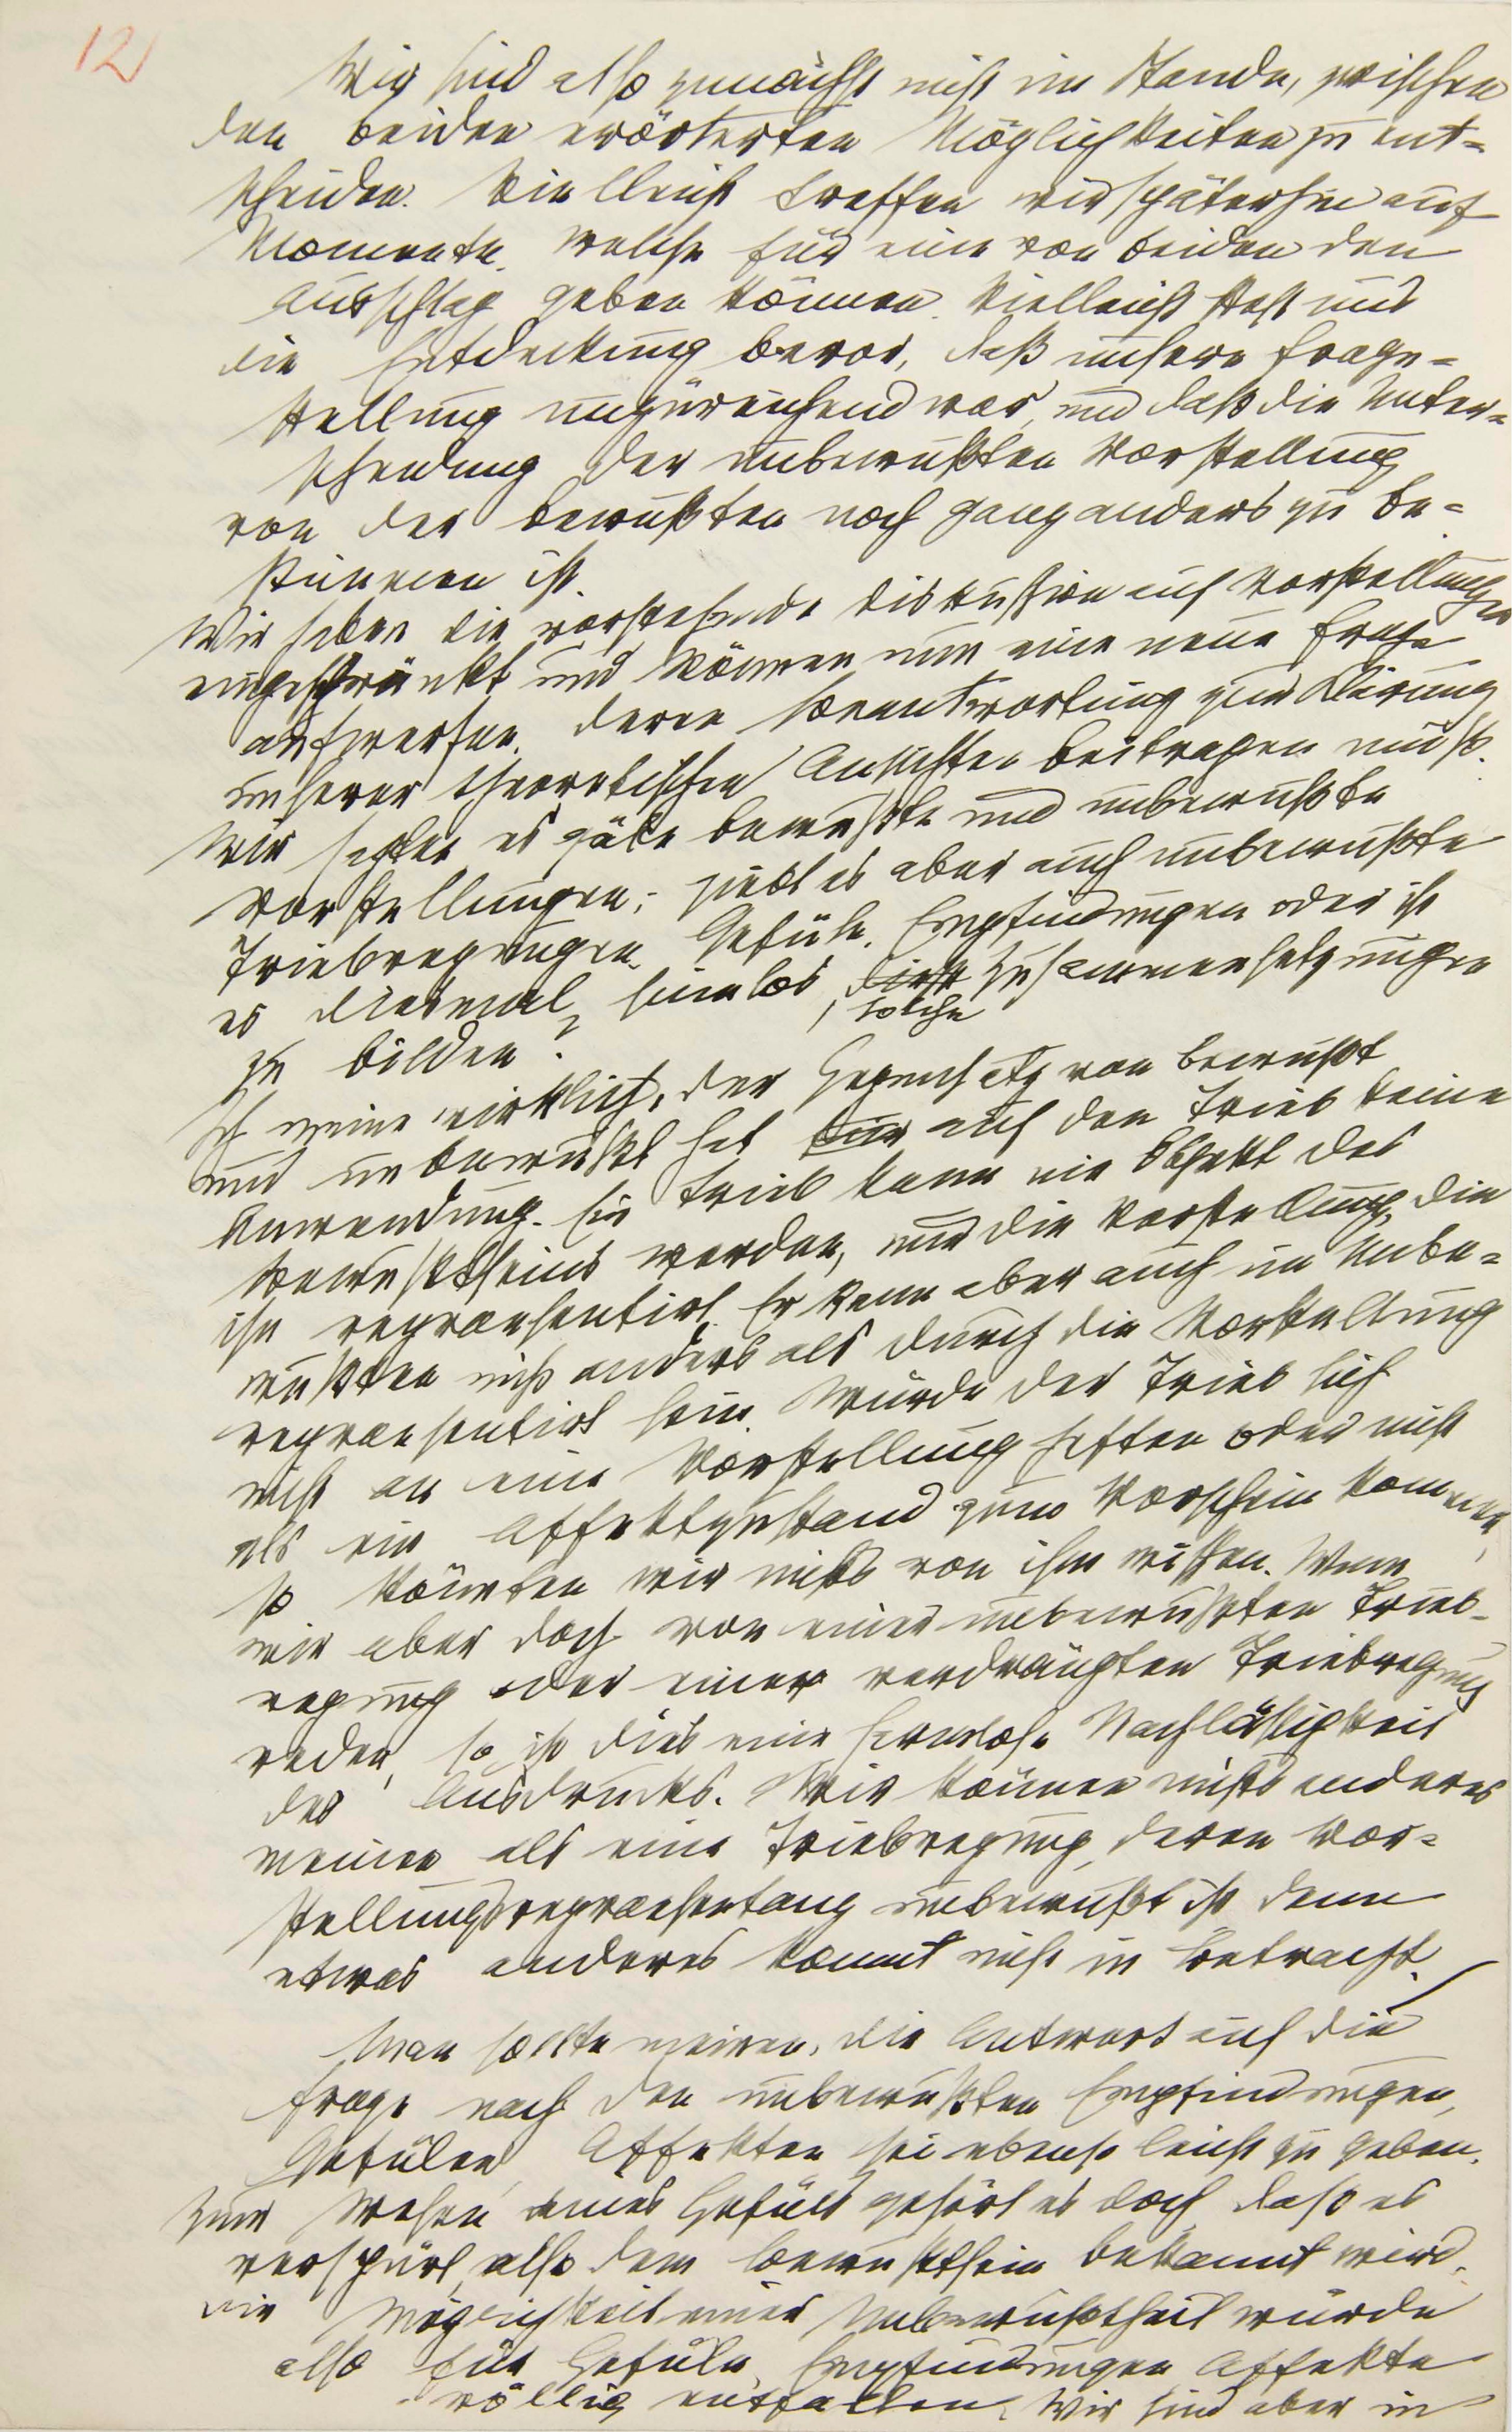 12
Wir sind also zunächst nicht im Stande, zwischen
den beiden erörterten Möglichkeiten zu ent=
scheiden. Vielleicht treffen wir späterhin auf
Momente, welche für eine von beiden den
Ausschlag geben können. Vielleicht steht uns
die Entdeckung bevor, daß unsere Frage=
stellung unzureichend war, und daß die Unter=
scheidung der unbewußten Vorstellung
von der bewußten noch ganz anders zu be=
stimmen ist.
Wir haben die vorstehende Diskussion auf Vorstellungen
eingeschränkt und können nun eine neue Frage
aufwerfen, deren Beantwortung zur Klärung
unserer theoretischen Ansichten beitragen muß.
Wir sagten es gäbe bewußte und unbewußte
Vorstellungen; giebt es aber auch unbewußte
Triebregungen, Gefühle, Empfindungen oder ist
es diesmal sinnlos, diese Zusammensetzungen
solche
zu bilden?
Ich meine wirklich, der Gegensatz von bewußt
und unbewußt hat auf den Trieb keine
Anwendung. Ein Trieb kann nie Objekt des
Bewußtseins werden, nur die Vorstellung, die
ihn repraesentirt. Er kann aber auch im Unbe=
wußten nicht anders als durch die Vorstellung
repraesentirt sein. Würde der Trieb sich
nicht an eine Vorstellung heften oder nicht
als ein Affektzustand zum Vorschein kommen,
so könnten wir nichts von ihm wissen. Wenn
wir aber doch von einer unbewußten Trieb-
regung oder einer verdrängten Triebregung
reden, so ist dies eine harmlose Nachlässigkeit
des Ausdrucks. Wir können nichts anderes
meinen als eine Triebregung, deren Vor=
stellungsrepraesentanz unbewußt ist denn
etwas anderes kommt nicht in Betracht.
Man sollte meinen, die Antwort auf die
Frage nach den unbewußten Empfindungen,
Gefülen, Affekten sei ebenso leicht zu geben.
Zum Wesen eines Gefüls gehört es doch, daß es
verspürt, also dem Bewußtsein bekannt wird.
Die Möglichkeit einer Unbewußtheit würde
also für Gefüle, Empfindungen Affekte
völlig entfallen. Wir sind aber in